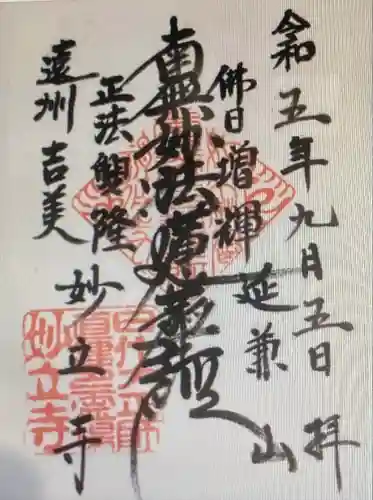 令和五年九月五日 拝
佛日増輝 延兼山
南無妙法蓮華経
正法興隆 妙立寺
遠州吉美
妙立寺